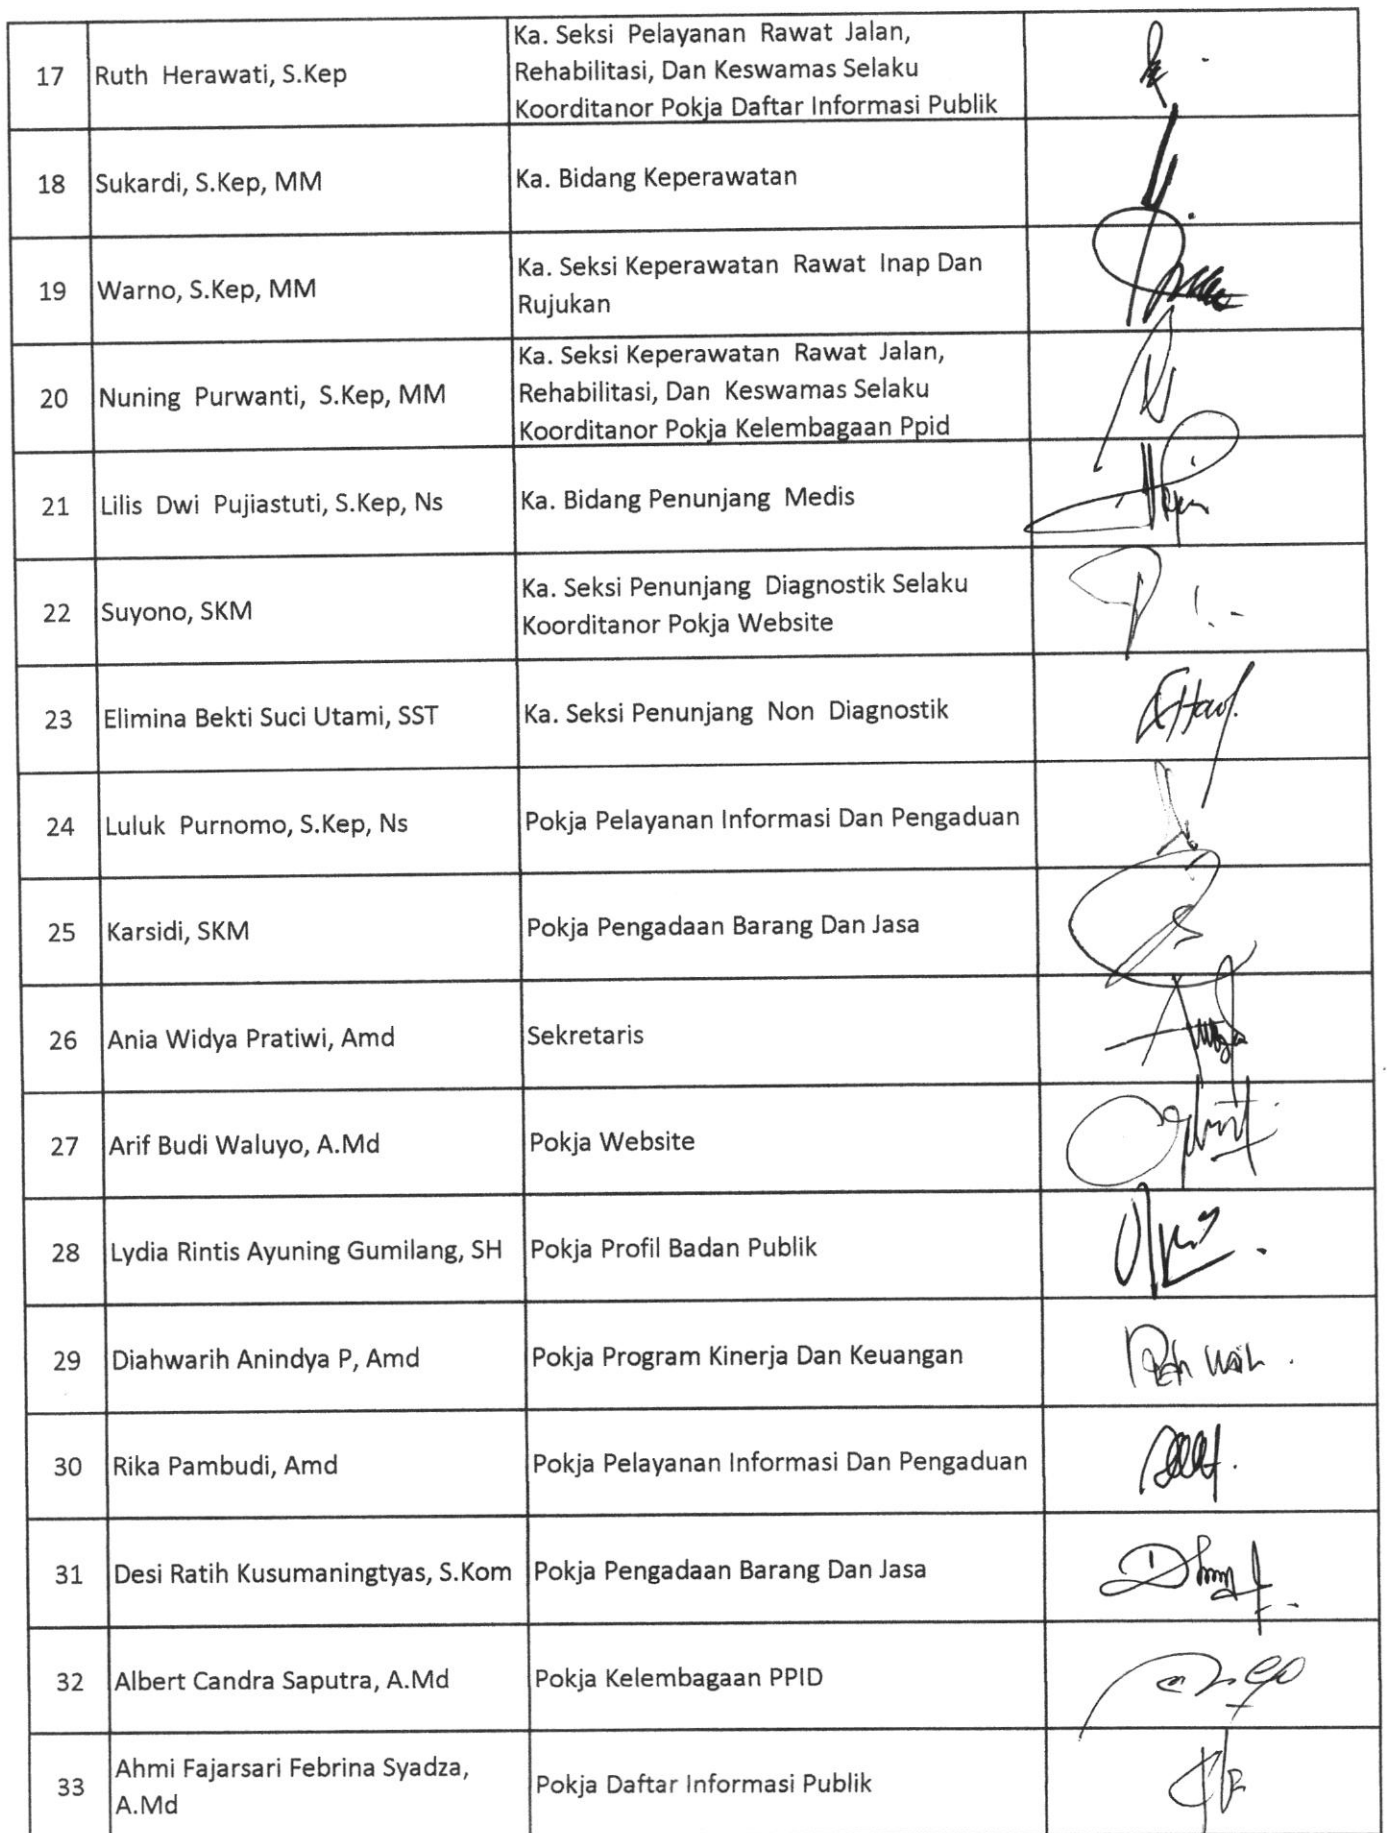 17
Ruth Herawati, S.Kep
Ka. Seksi Pelayanan Rawat Jalan,
Rehabilitasi, Dan Keswamas Selaku
Koorditanor Pokja Daftar Informasi Publik
18
Sukardi, S.Kep, MM
Ka. Bidang Keperawatan
19
Warno, S.Kep, MM
Ka. Seksi Keperawatan Rawat Inap Dan
Rujukan
20
Nuning Purwanti, S.Kep, MM
Ka. Seksi Keperawatan Rawat Jalan,
Rehabilitasi, Dan Keswamas Selaku
Koorditanor Pokja Kelembagaan Ppid
21
Lilis Dwi Pujiastuti, S.Kep, Ns
Ka. Bidang Penunjang Medis
22
Suyono, SKM
Ka. Seksi Penunjang Diagnostik Selaku
Koorditanor Pokja Website
23
Elimina Bekti Suci Utami, SST
Ka. Seksi Penunjang Non Diagnostik
24
Luluk Purnomo, S.Kep, Ns
Pokja Pelayanan Informasi Dan Pengaduan
25
Karsidi, SKM
Pokja Pengadaan Barang Dan Jasa
26
Ania Widya Pratiwi, Amd
Sekretaris
27
Arif Budi Waluyo, A.Md
Pokja Website
28
Lydia Rintis Ayuning Gumilang, SH
Pokja Profil Badan Publik
29
Diahwarih Anindya P, Amd
Pokja Program Kinerja Dan Keuangan
30
Rika Pambudi, Amd
Pokja Pelayanan Informasi Dan Pengaduan
31
Desi Ratih Kusumaningtyas, S.Kom
Pokja Pengadaan Barang Dan Jasa
32
Albert Candra Saputra, A.Md
Pokja Kelembagaan PPID
33
Ahmi Fajarsari Febrina Syadza,
A.Md
Pokja Daftar Informasi Publik